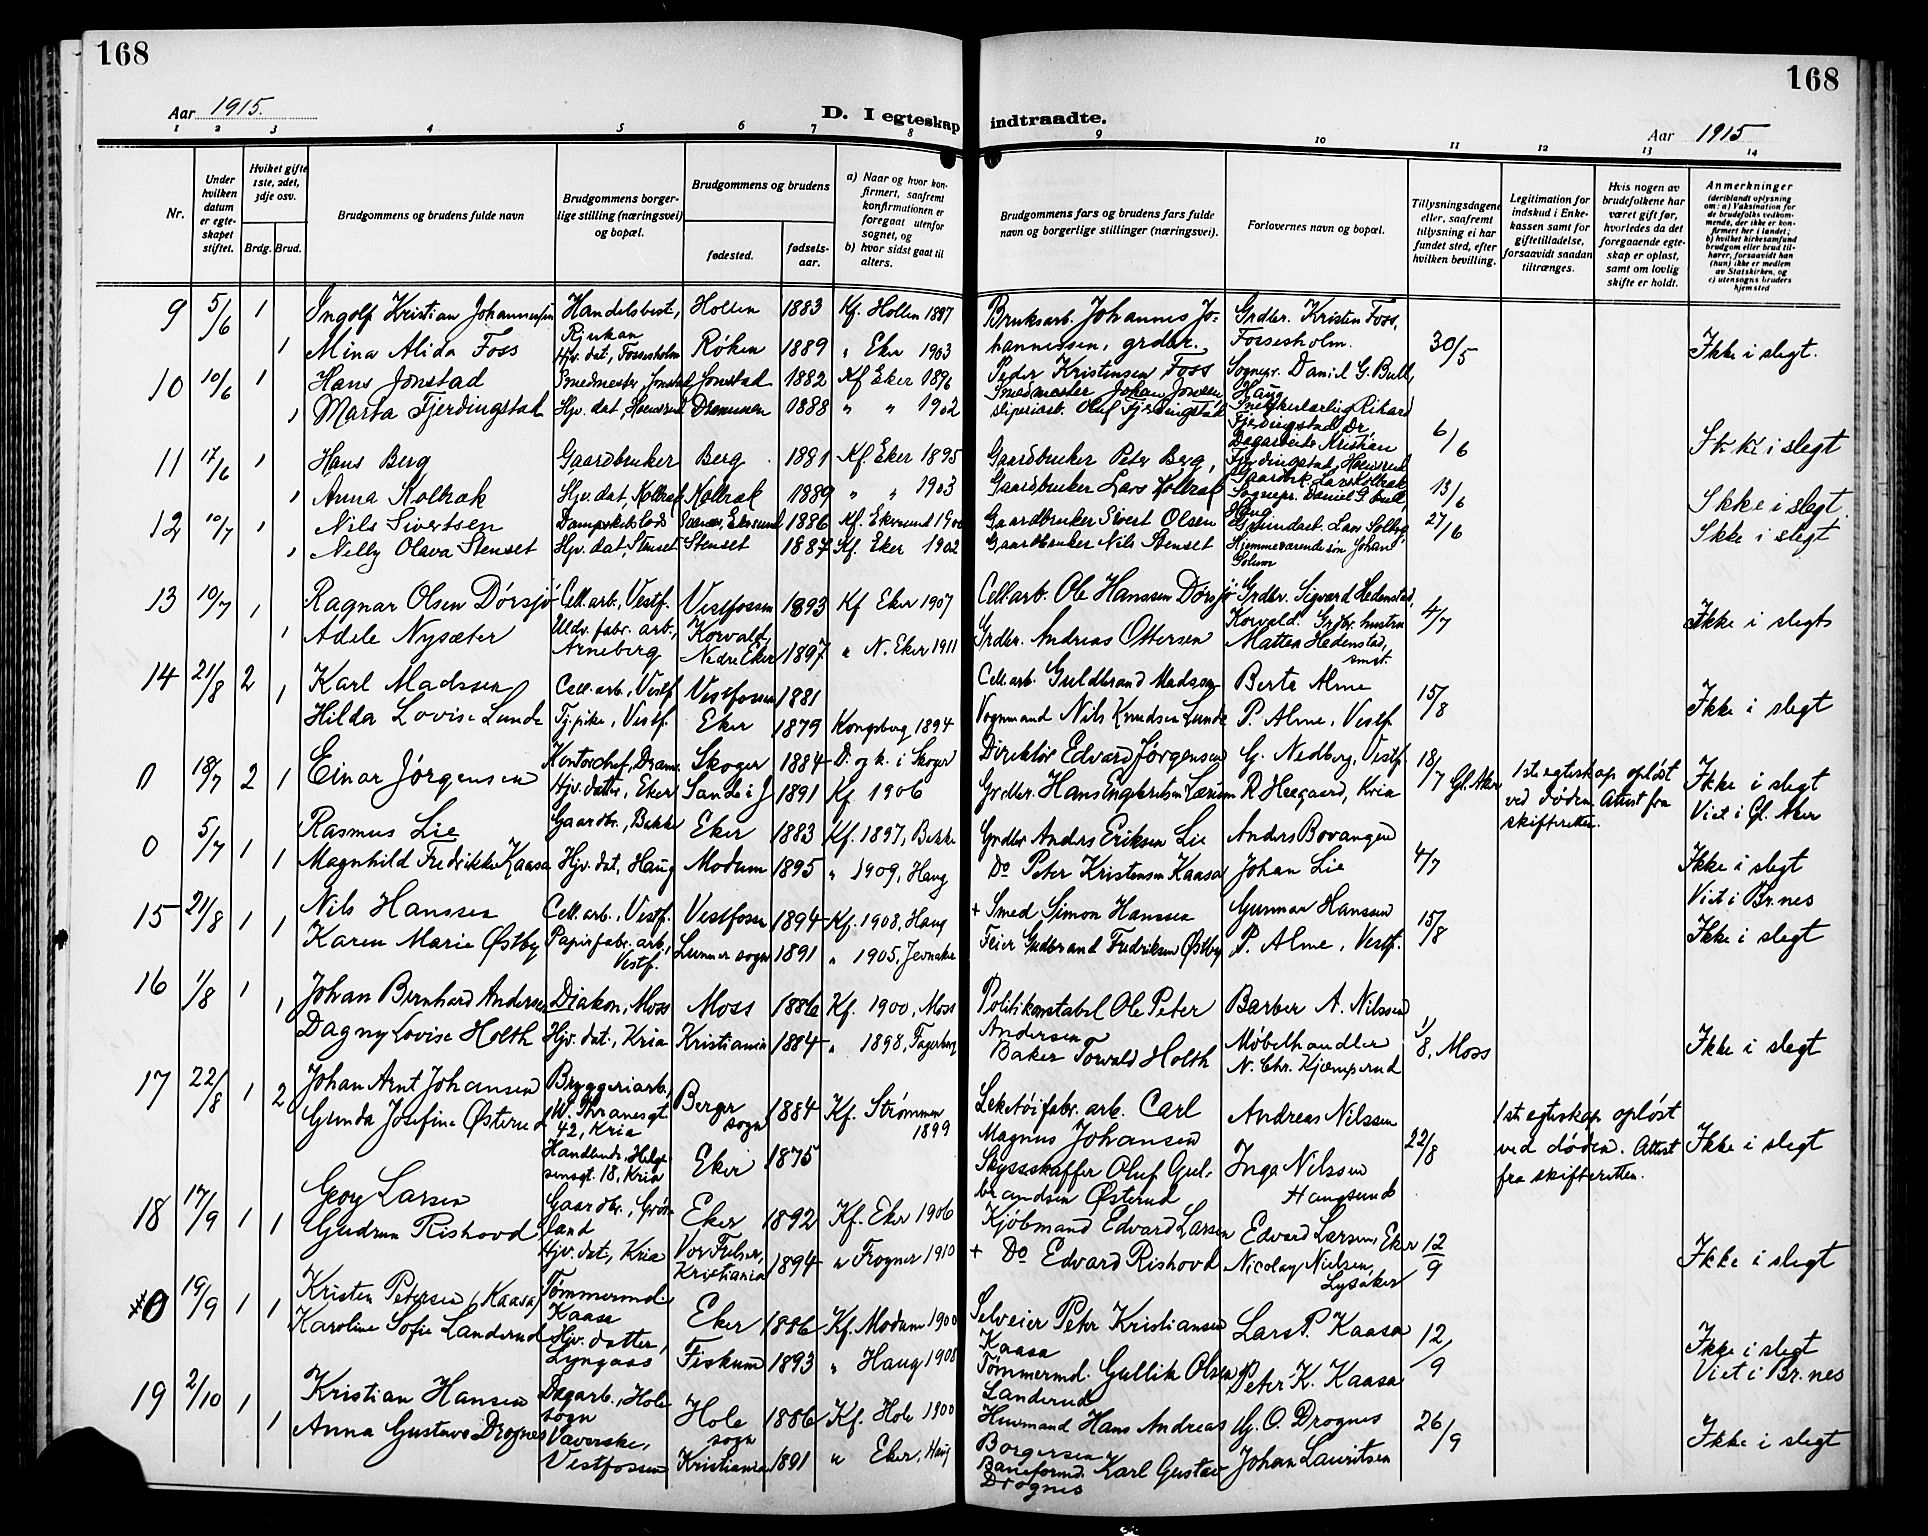 168
168
Aar 1915.
D. I egteskap indtraadte.
Aar 1915
1 2 3 4 5 6 7 8 9 10 11 12 13 14
Nr.
Under hvilken datum er egte-skapet stiftet.
Hvilket gifte 1ste, 2det, 3dje osv.
Brdg. Brud.
Brudgommens og brudens fulde navn
Brudgommens borger-lige stilling (næringsvei) og bopæl.
Brudgommens og brudens
fødested.
fødsels-aar.
a) Naar og hvor kon-firmert, saafremt konfirmationen er foregaat utenfor sognet, og
b) hvor sidst gaat til alters.
Brudgommens fars og brudens fars fulde navn og borgerlige stillinger (næringsvei).
Forlovernes navn og bopæl.
Tillysningsdagene eller, saafremt tillysning ei har fundet sted, efter hvilken bevilling.
Legitimation for indskud i Enke-kassen samt for giftetilladelse, forsaavidt saadan tiltrænges.
Hvis nogen av brudefolkene har været gift før, hvorledes da det foregaaende egte-skap er opløst, samt om lovlig skifte er holdt.
Anmerkninger (deriblandt oplysning om: a) Vaksination for de brudefolks vedkom-mende, der ikke er kon-firmert her i landet; b) hvilket kirkesamfund brudgom eller brud til-hører, forsaavidt han (hun) ikke er medlem av Statskirken, og c) utensogns bruders hjemsted
9 5/6 1 Ingolf Kristian Johannessen Handelsbest, Rjukan Hollen 1883 Kf. Hollen 1897 Bruksarb. Johannes Jo-hannessen, grdbr. Grdbr. Kristen Foss, Fossesholm. 30/5
1 Mina Alida Foss Hjv. dat, Fossesholm Røken 1889 " Eker 1903 Peder Kristensen Foss Sognepr. Daniel G. Bull, Haug Ikke i slegt.
10 10/6 1 Hans Jonstad Smedmester Jonstad Jonstad 1882 Kf Eker 1896 Smedmester Johan Jonsen Snekkerlærling Rikard Fjerdingstad, Dr.
1 Marta Fjerdingstad Hjv. dat, Hoensrud Drammen 1888 " " 1902 Sliperiarb. Oluf Fjerdingstad Dagarbeider Kristian Fjerdingstad, Hoensrud 6/6 Ikke i slegt
11 17/6 1 Hans Berg Gaardbruker Berg 1881 Kf. Eker 1895 Gaardbruker Peter Berg, Gaardbr. Lars Kolbræk
1 Anna Kolbræk Hjv. dat. Kolbræk Kolbræk 1889 " " 1903 Gaardbruker Lars Kolbræk Sognepr. Daniel G. Bull, Haug 13/6 Ikke i slegt.
12 10/7 1 Nils Sivertsen 1886 Kf. Gaardbruker Sivert Olsen 27/6 Ikke i slegt
1 Nelly Olava Stenset Hjv. dat, Stenset Stenset 1887 Kf. Eker 1902 Gaardbruker Nils Stenset Hjemmeværende søn Johan Solum
13 10/7 1 Ragnar Olsen Dørsjø Cell. arb., Vestf. Vestfossen 1893 Kf Eker 1907 Cell. arb. Ole Hanssen Dørsjø Grdbr. Sigvard Hedenstad, Korvald.
1 Adele Nysæter Uldv. fabr. arb., Arneberg Korvald, Nedre Eker 1897 " N. Eker 1911 Grdbr. Andreas Ottersen Grdbr. hustru Mattea Hedenstad, smst. 4/7 Ikke i slegt
14 21/8 2 Karl Madssen Cell. arb., Vestf Vestfossen 1881 Cell. arb. Guldbrand Madsen Berta Alme
1 Hilda Lovise Lunde Tj. pike, Vestf. Eker 1879 Kongsberg 1894 Vognmand Nils Knudsen Lunde P. Alme, Vestf. 15/8 Ikke i slegt
0 18/7 2 1 Einar Jørgensen Kontorchef, Dram. Skoger 1884 D. og k. i Skoger Direktør Edvard Jørgensen G. Nedberg, Vestf. 18/7 Gl. Aker 1ste egteskap opløst ved døden. Attest fra skifteretten.
Hjv. datter, Eker Sande i J 1891 Kf 1906 Grdbr. Hans Engebretsen Lærum R Heegaard, Kria Ikke i slegt Viet i Gl. Aker
0 5/7 1 Rasmus Lie Gaardbr., Bakke Eker 1883 Kf. 1897, Bakke Grdbr Anders Eriksen Lie Anders Bovangen
1 Magnhild Fredrikke Kaasa Hjv. dat, Haug Modum 1895 " 1909, Haug Do Peter Kristensen Kaasa Johan Lie 4/7 Ikke i slegt Viet i Br.nes
15 21/8 1 Nils Hanssen Cell. arb., Vestf. Vestfossen 1894 Kf. 1908, Haug + Smed Simon Hanssen Gunnar Hanssen
1 Karen Marie Østby Papirfabr. arb., Vestf. Lunner sogn 1891 " 1905, Jevnaker Feier Gudbrand Fredriksen Østby P. Alme, Vestf. 15/8 Ikke i slegt
16 1/8 1 Johan Bernhard Andersen Diakon, Moss Moss 1886 Kf. 1900, Moss Politikonstabel Ole Peter Andersen Barber A. Nilssen
1 Dagny Lovise Holth Hjv. dat., Kria Kristiania 1884 " 1898, Fagerborg Baker Torvald Holth Møbelhandler N. Chr. Kjæmperud 1/8, Moss Ikke i slegt
17 22/8 1 2 Johan Arnt Johansen Bryggeriarb., W. Thranesgt 42, Kria Berger sogn 1884 Kf. Strømmen 1899 Leketøifabr. arb. Carl Magnus Johansen Andreas Nilssen
Gunda Josefine Østerud Handlende, Helgesensgt. 18, Kria Eker 1875 Skysskaffer Oluf Gul-brandsen Østerud Inga Nilssen Haugsund 22/8 1ste egteskap opløst ved døden. Attest fra skifteretten. Ikke i slegt
18 17/9 1 Georg Larsen Gaardbr., Grøsland Eker 1892 Kf. Eker 1906 Kjøbmand Edvard Larsen Edvard Larsen, Eker
1 Gudrun Rishovd Hjv. dat., Kria Vor Frelser, Kristiania 1894 " Frogner 1910 + Do Edvard Rishovd Nicolay Nielsen, Lysaker 12/9 Ikke i slegt
#0 19/9 1 Kristen Petersen (Kaasa) Tømmermd Kaasa Eker 1886 Kf. Modum 1900 Selveier Peter Kristiansen Kaasa Lars P. Kaasa
1 Karoline Sofie Landerud Hjv. datter, Lyngaas Fiskum 1893 " Haug 1908 Tømmermd. Gullik Olsen Landerud Peter K. Kaasa 12/9 Ikke i slegt Viet i Br.nes
19 2/10 1 Kristian Hansen Dagarb., Hole sogn Hole sogn 1886 Kf. Hole 1900 Husmand Hans Andreas Borgersen G. O. Drognes
1 Anna Gustava Drognes Væverske, Vestfossen Kristiania 1891 " Eker, Haug Baneformd. Karl Gustav Drognes Johan Lauritsen 26/9 Ikke i slegt